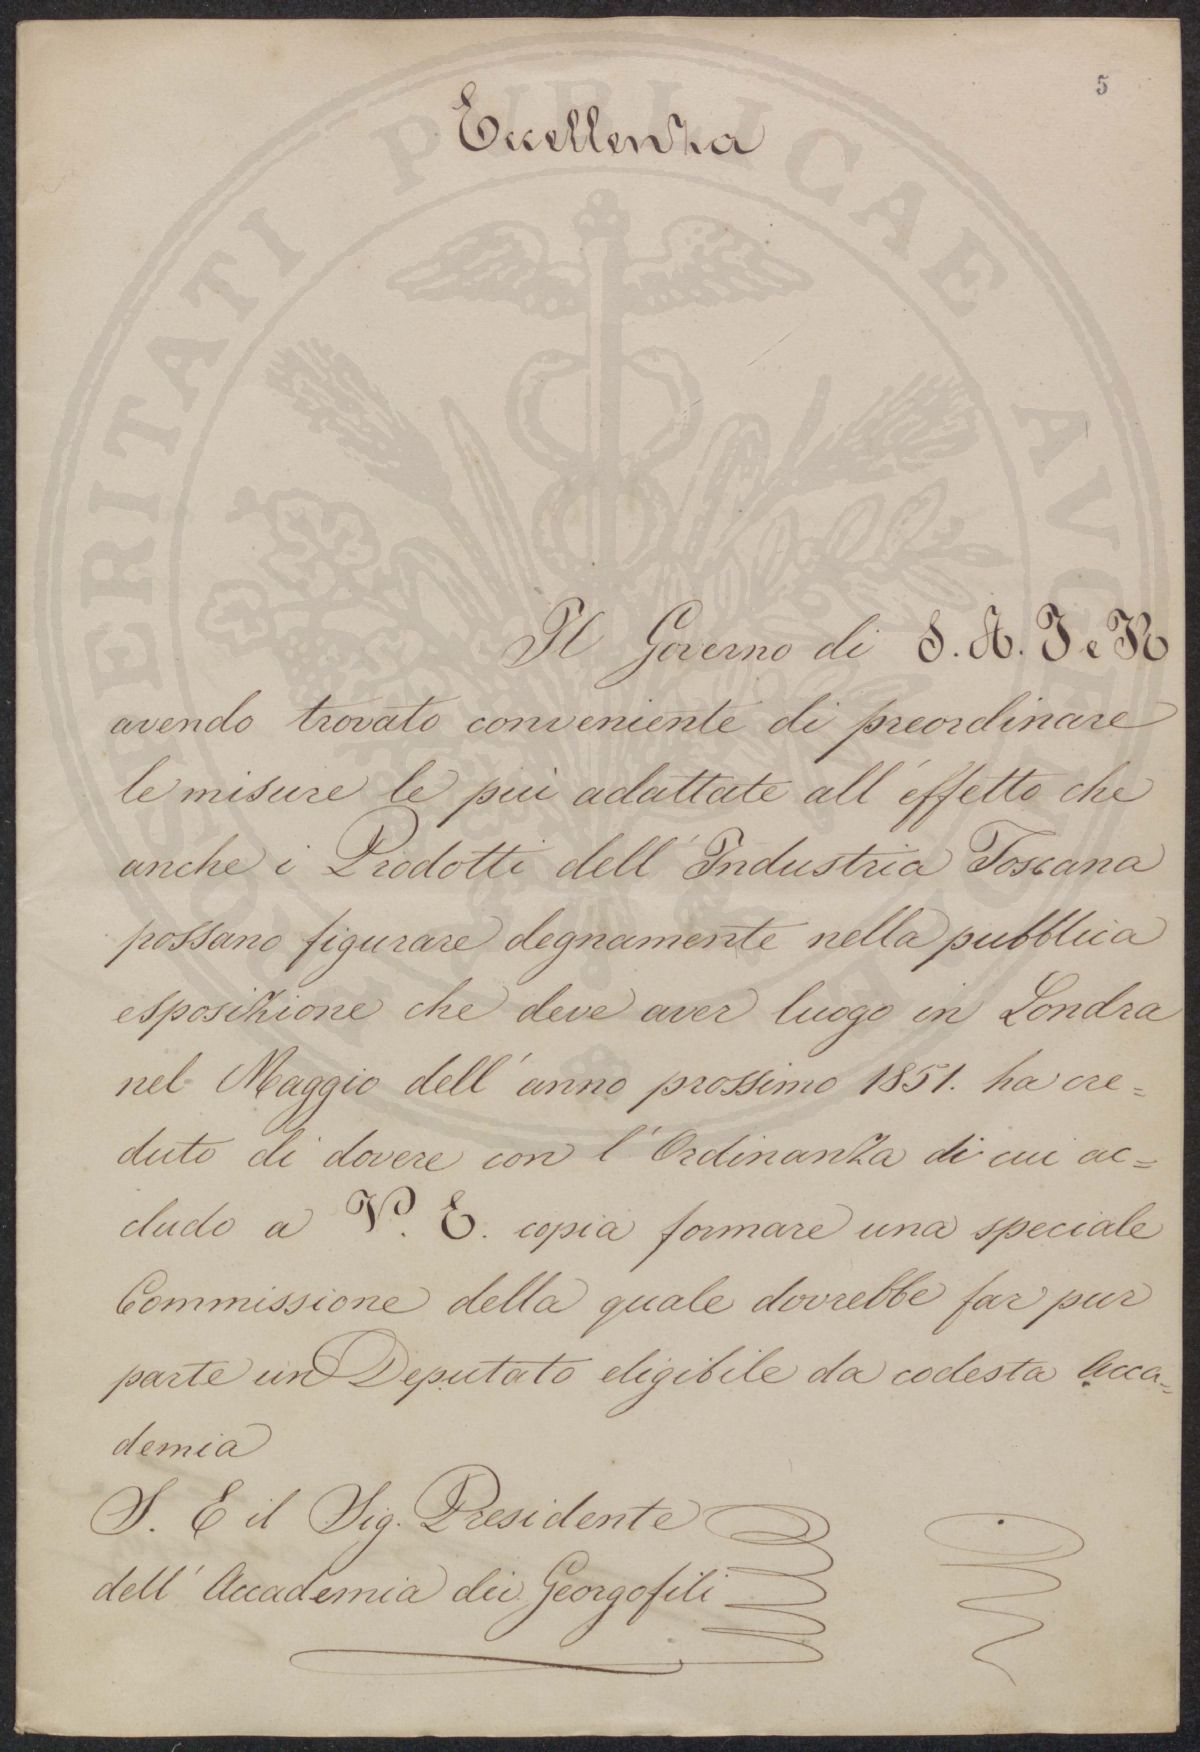 5
Eccellenza
Il Governo di S. A. I e R
avendo trovato conveniente di preordinare
le misure le più adattate all'effetto che
anche i Prodotti dell'Industria Toscana
possano figurare degnamente nella pubblica
esposizione che deve aver luogo in Londra
nel Maggio dell'anno prossimo 1851. ha cre=
duto di dovere con l'Ordinanza di cui ac=
cludo a V. E. copia formare una speciale
Commissione della quale dovrebbe far pur
parte un Deputato eligibile da codesta Acca=
demia
S. E il Sig. Presidente
dell'Accademia dei Georgofili
PROSPERITATI PUBLICAE AVGENDAE